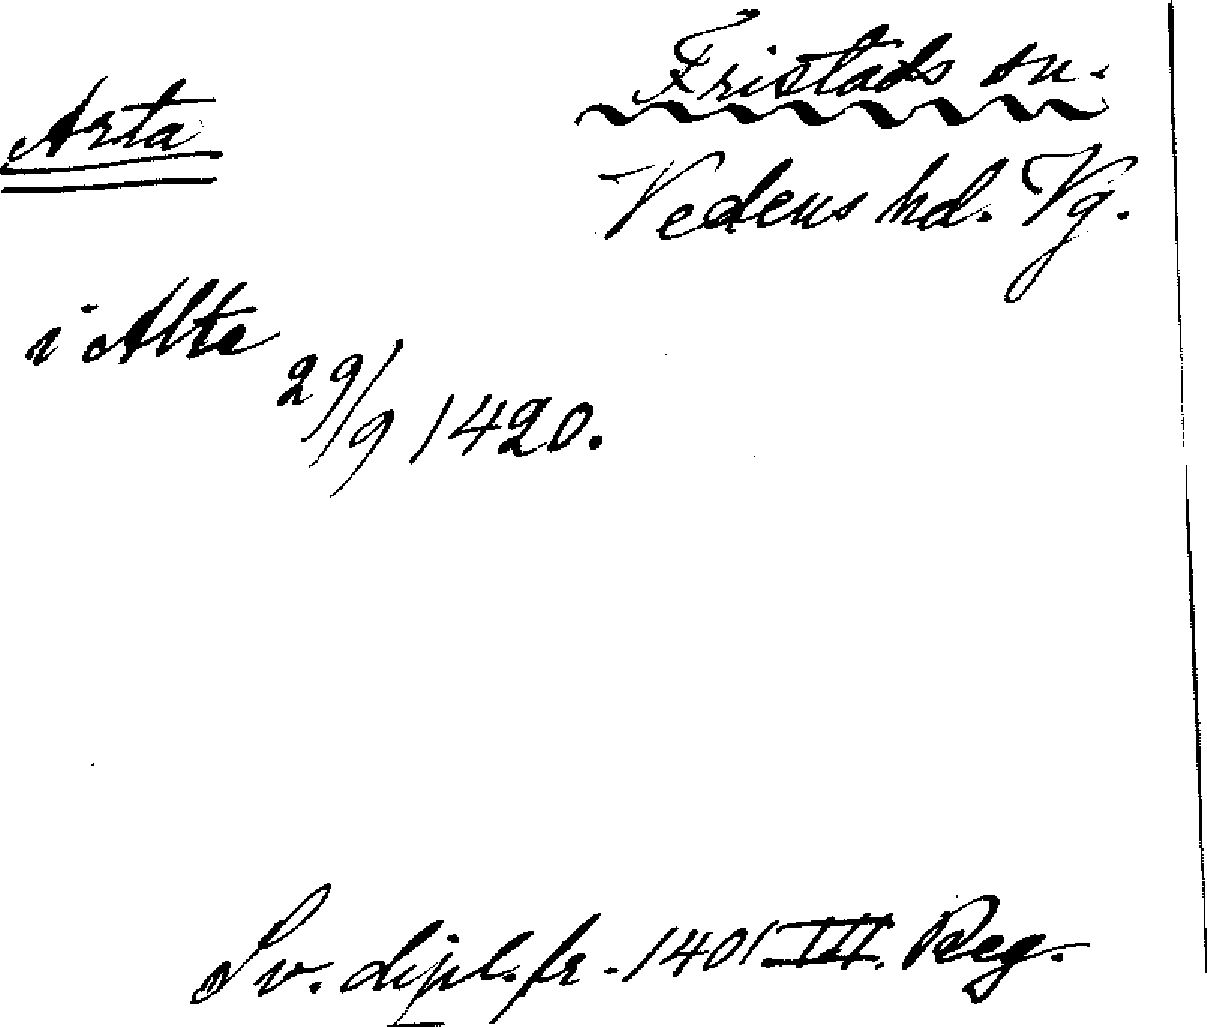 Arta
Fristads sn.
Vedens hd. Vg.
i Alta
29/9 1420.
Sv. dipl. fr. 1401 III. Reg.